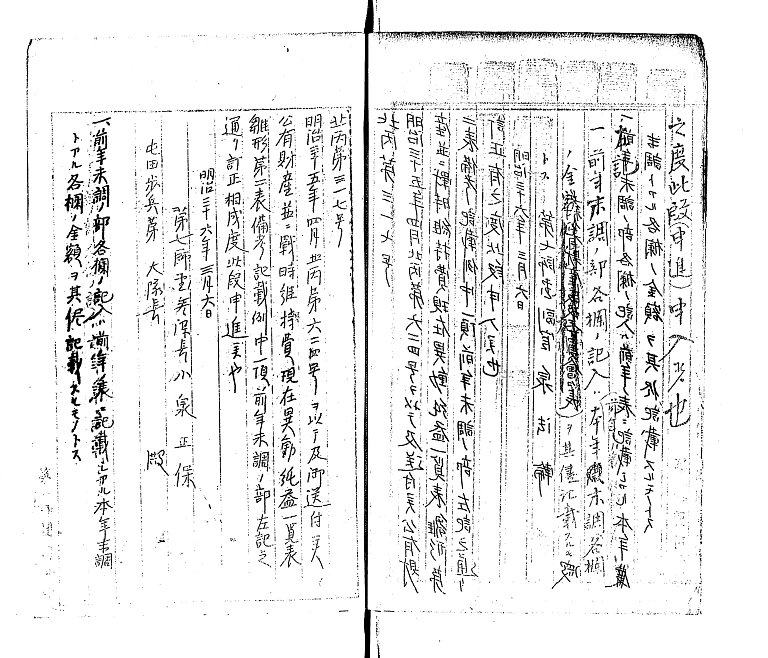 北丙第三一六号
明治三十五年四月北丙第六二四号ヲ以テ及送付候公有財
産並ニ戦時維持費現在異動純益一覧表雛形第
二表備考記載例中一項前年末調ノ部左記之通リ
訂正有之度此段申入候也
明治三十六年三月 日
第七師団副官泉法輪
一前年末調ノ部各欄ノ記入ハ本年末調各欄
ノ金額ヲ其侭記載スル
一前年末調ノ部各欄ノ記入ハ前年ノ表ニ記載シアル本年
末調トアル各欄ノ金額ヲ其侭記載スルモノトス
之度此段申進(申入)候也
北丙第三一七号
明治三十五年四月北丙第六二四号ヲ以テ及御送付候
公有財産並ニ戦時維持費現在異動純益一覧表
雛形第二表備考記載例中一項前年末調ノ部左記之
通リ訂正相成度此段申進候也
明治三十六年三月六日
第七師団参謀長小泉正保
屯田歩兵第 大隊長 殿
一、前年末調ノ部各欄ノ記入ハ前年ノ表ニ記載シアル本年末調
トアル各欄ノ金額ヲ其侭記載スルモノトス